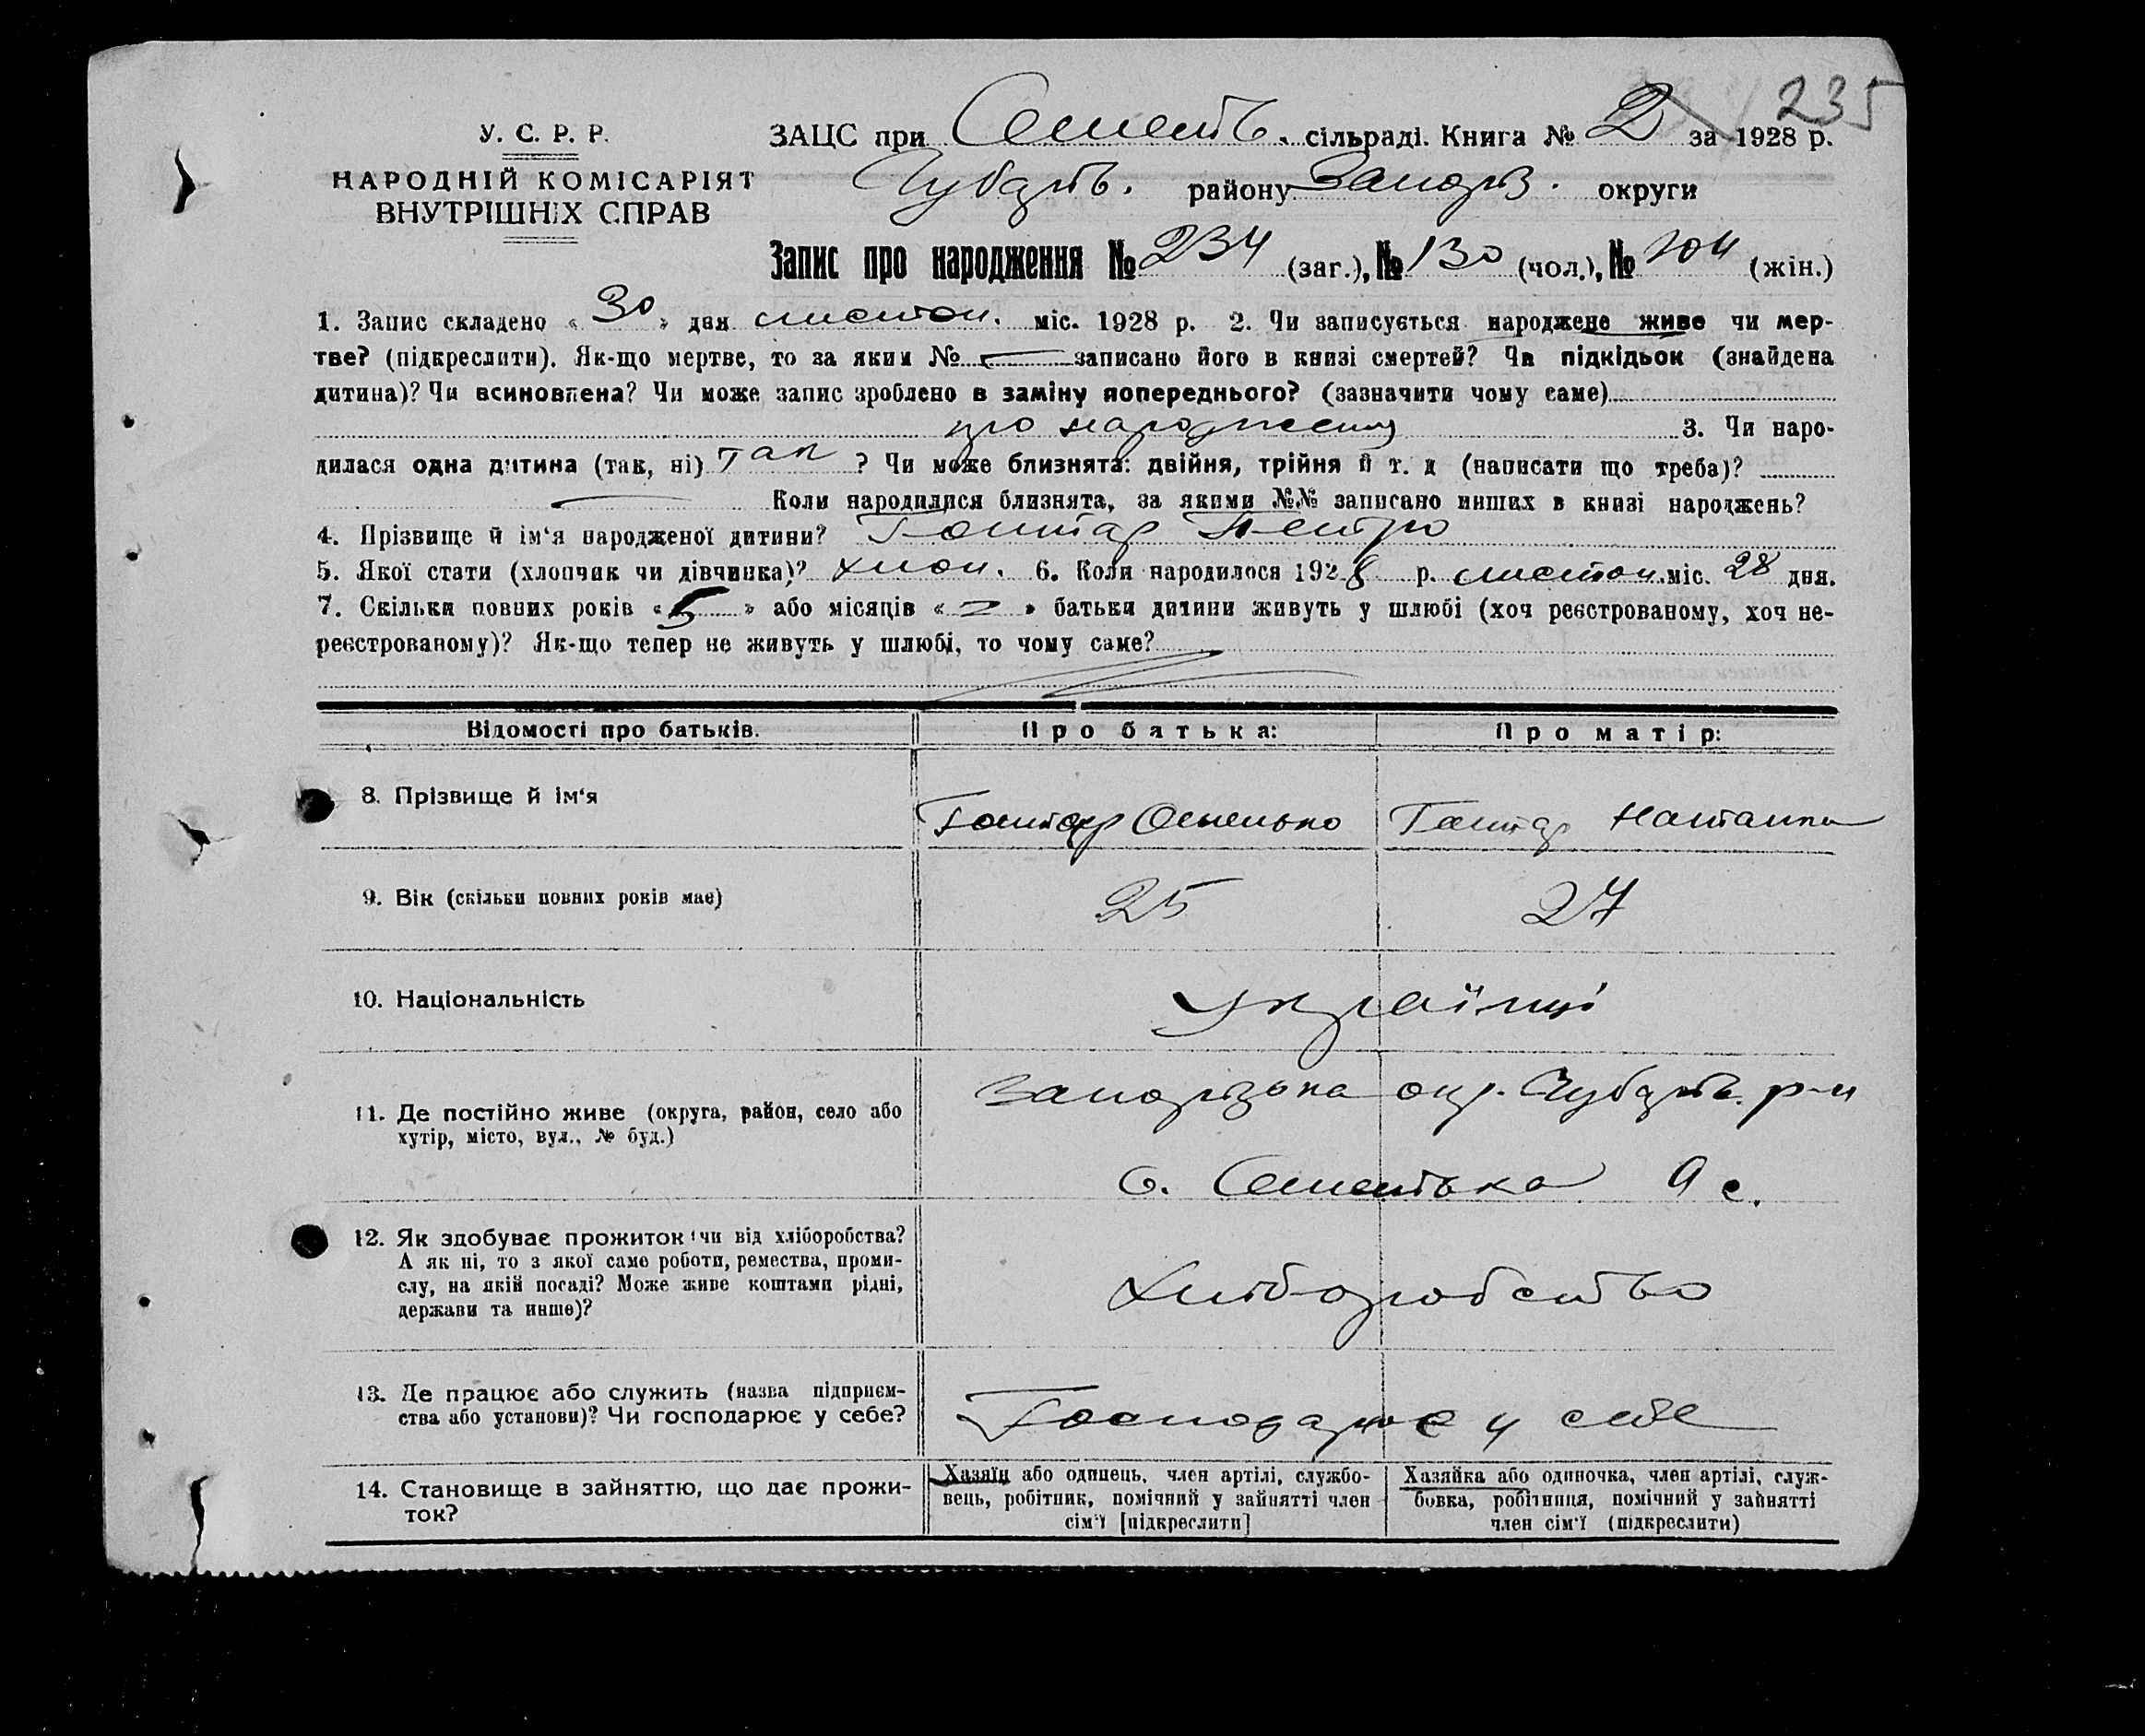 235
У. С. Р. Р.
НАРОДНІЙ КОМІСАРІЯТ
ВНУТРІШНІХ СПРАВ
ЗАЦС при Семенів. сільраді. Книга № 2 за 1928 р.
Чубарів. району Запоріз. округи
Запис про народження № 234 (заг.), № 130 (чол.), № 104 (жін.)
1. Запис складено « 30 » дня листоп. міс. 1928 р. 2. Чи записується народжене живе чи мер-
тве? (підкреслити). Як-що мертве, то за яким № — записано його в книзі смертей? Чи підкідьок (знайдена
дитина)? Чи всиновлена? Чи може запис зроблено в заміну попереднього? (зазначити чому саме)
про народження 3. Чи наро-
дилася одна дитина (так, ні) так ? Чи може близнята: двійня, трійня й т. д (написати що треба)?
— Коли народилися близнята, за якими №№ записано инших в книзі народжень?
4. Прізвище й ім‘я народженої дитини? Гонтар Петро
5. Якої стати (хлопчик чи дівчинка)? хлоп. 6. Коли народилося 1928 р. листоп. міс. 28 дня.
7. Скільки повних років « 5 » або місяців « — » батьки дитини живуть у шлюбі (хоч реєстрованому, хоч не-
реєстрованому)? Як-що тепер не живуть у шлюбі, то чому саме?
Відомості про батьків. Про батька: Про матір:
8. Прізвище й ім‘я Гонтар Гонтар
9. Вік (скільки повних років має) 25 27
10. Національність українці
11. Де постійно живе (округа, район, село або
хутір, місто, вул., № буд.)
Запорізька окр. Чубарів. р-н
с. Семенівка
12. Як здобуває прожиток чи від хліборобства?
А як ні, то з якої саме роботи, ремества, проми-
слу, на якій посаді? Може живе коштами рідні,
держави та инше)?
Хліборобство
13. Де працює або служить (назва підприєм-
ства або установи)? Чи господарює у себе?
Господарює у себе
14. Становище в зайняттю, що дає прожи-
ток?
Хазяїн або одинець, член артілі, службо-
вець, робітник, помічний у зайнятті член
сім‘ї [підкреслити]
Хазяйка або одиночка, член артілі, служ-
бовка, робітниця, помічний у зайнятті
член сім‘ї (підкреслити)